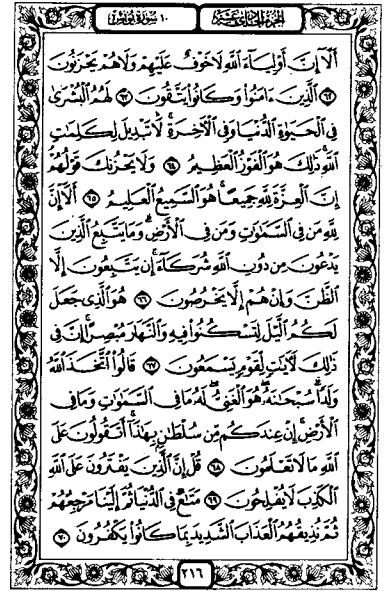 الجزء الحادي عشر
١٠ سورة يونس
أَلَآ إِنَّ أَوْلِيَآءَ ٱللَّهِ لَا خَوْفٌ عَلَيْهِمْ وَلَا هُمْ يَحْزَنُونَ
٦٢ ٱلَّذِينَ ءَامَنُوا۟ وَكَانُوا۟ يَتَّقُونَ ٦٣ لَهُمُ ٱلْبُشْرَىٰ
فِى ٱلْحَيَوٰةِ ٱلدُّنْيَا وَفِى ٱلْـَٔاخِرَةِ ۚ لَا تَبْدِيلَ لِكَلِمَٰتِ
ٱللَّهِ ۚ ذَٰلِكَ هُوَ ٱلْفَوْزُ ٱلْعَظِيمُ ٦٤ وَلَا يَحْزُنكَ قَوْلُهُمْ ۘ
إِنَّ ٱلْعِزَّةَ لِلَّهِ جَمِيعًا ۚ هُوَ ٱلسَّمِيعُ ٱلْعَلِيمُ ٦٥ أَلَآ إِنَّ
لِلَّهِ مَن فِى ٱلسَّمَٰوَٰتِ وَمَن فِى ٱلْأَرْضِ ۗ وَمَا يَتَّبِعُ ٱلَّذِينَ
يَدْعُونَ مِن دُونِ ٱللَّهِ شُرَكَآءَ ۚ إِن يَتَّبِعُونَ إِلَّا
ٱلظَّنَّ وَإِنْ هُمْ إِلَّا يَخْرُصُونَ ٦٦ هُوَ ٱلَّذِى جَعَلَ
لَكُمُ ٱلَّيْلَ لِتَسْكُنُوا۟ فِيهِ وَٱلنَّهَارَ مُبْصِرًا ۚ إِنَّ فِى
ذَٰلِكَ لَـَٔايَٰتٍ لِّقَوْمٍ يَسْمَعُونَ ٦٧ قَالُوا۟ ٱتَّخَذَ ٱللَّهُ
وَلَدًا ۗ سُبْحَٰنَهُۥ ۖ هُوَ ٱلْغَنِىُّ ۖ لَهُۥ مَا فِى ٱلسَّمَٰوَٰتِ وَمَا فِى
ٱلْأَرْضِ ۚ إِنْ عِندَكُم مِّن سُلْطَٰنٍۭ بِهَٰذَآ ۚ أَتَقُولُونَ عَلَى
ٱللَّهِ مَا لَا تَعْلَمُونَ ٦٨ قُلْ إِنَّ ٱلَّذِينَ يَفْتَرُونَ عَلَى ٱللَّهِ
ٱلْكَذِبَ لَا يُفْلِحُونَ ٦٩ مَتَٰعٌ فِى ٱلدُّنْيَا ثُمَّ إِلَيْنَا مَرْجِعُهُمْ
ثُمَّ نُذِيقُهُمُ ٱلْعَذَابَ ٱلشَّدِيدَ بِمَا كَانُوا۟ يَكْفُرُونَ ٧٠
٢١٦